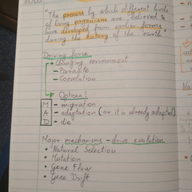 "The process by which different kinds
of living organism are believed to
have developed from earlier forms
during the history of the earth"
Driving force
• Changing environment
- Parasite
- Coevolution
Options:
M - migration
A - adaptation (or it is already adapted)
D - die
Major mechanisms - drive evolution
• Natural Selection
• Mutation
• Gene Flow
• Gene Drift